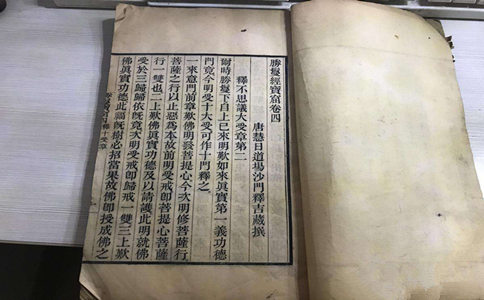 勝鬘經寶窟卷四
唐慧日道場沙門釋吉藏撰
釋不思議大受章第二
爾時勝鬘下自上已來明歎如來眞實第一義功德
門竟今明受十大受可作十門釋之
一來意門前章歎佛明發菩提心今次明修菩薩行
菩薩之行以止惡爲本故前明受戒卽菩提心菩薩
行一雙也二上歎佛眞實功德及以請護此明就佛
受於三歸歸依旣竟次明受戒卽歸戒一雙三上歎
佛眞實功德此福旣樹必招當果故佛卽授成佛之